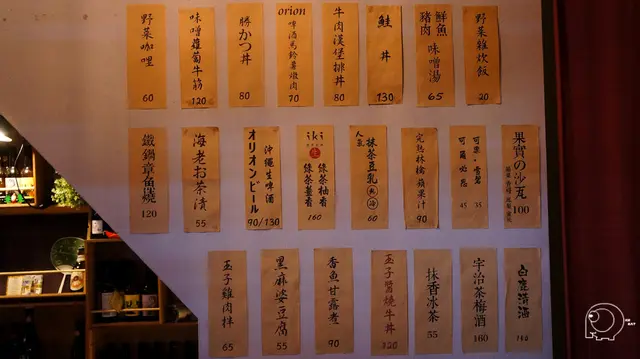 野菜咖哩 60
味噌蘿蔔牛筋 120
勝かつ丼 80
orion 啤酒馬鈴薯燉肉 70
牛肉漢堡排丼 80
鮭丼 130
鮮魚 豬肉 味噌湯 65
野菜雜炊飯 20
鐵鍋章魚燒 120
海老お茶漬 55
オリオンビール 沖縄生啤酒 90/130
iki 綠茶柚香 綠茶薑香 160
人氣 抹茶豆乳 60
完熟林檎蘋果汁 90
可樂·雪碧 35
可爾必思 45
果實の沙瓦 100
玉子雞肉拌 65
黑麻婆豆腐 55
香魚甘露煮 90
玉子醬燒牛丼 120
抹香冰茶 55
宇治茶梅酒 160
白鹿清酒 160